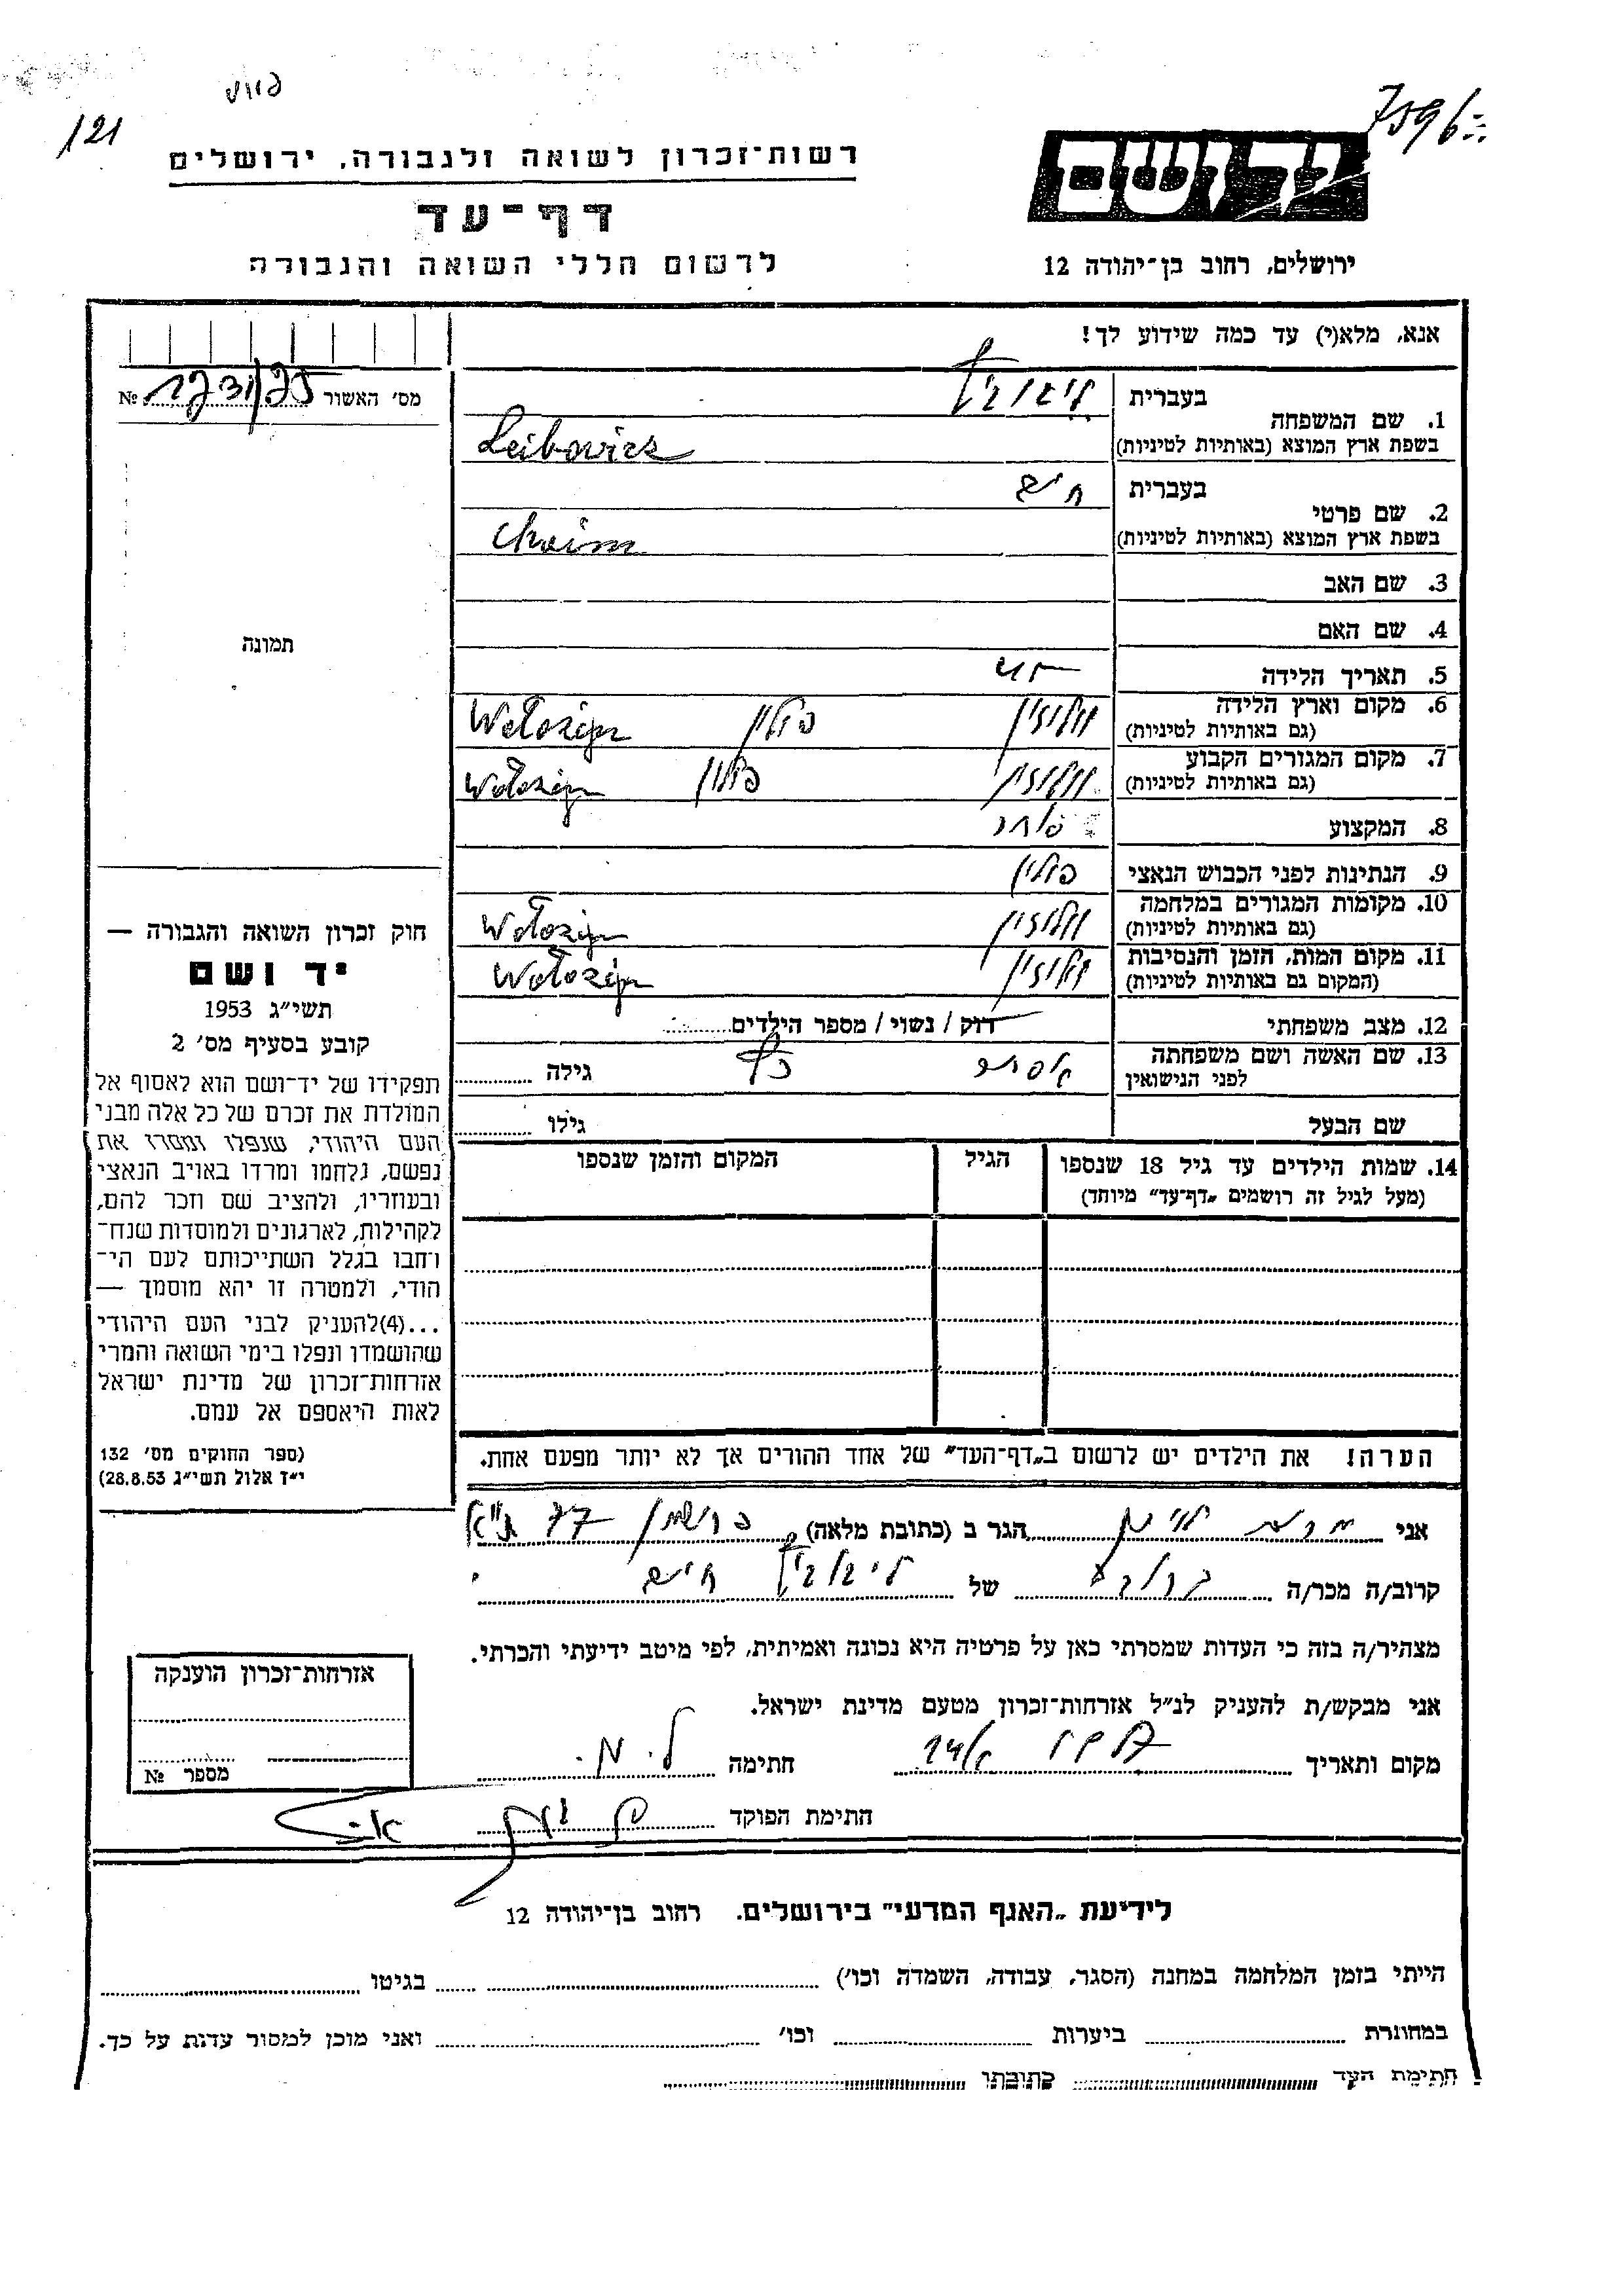 121
7596
רשות־זכרון לשואה ולגבורה, ירושלים
יד ושם
דף־עד
לרשום חללי השואה והגבורה
ירושלים, רחוב בן־יהודה 12
אנא, מלא(י) עד כמה שידוע לך!
מס׳ האשור №
1. שם המשפחה
בעברית ליבוביץ
בשפת ארץ המוצא (באותיות לטיניות) Leibowicz
2. שם פרטי
בעברית חיים
בשפת ארץ המוצא (באותיות לטיניות) Chaim
3. שם האב
4. שם האם
תמונה
5. תאריך הלידה
6. מקום וארץ הלידה
(גם באותיות לטיניות) וולוז׳ין פולין Wołożyn
7. מקום המגורים הקבוע
(גם באותיות לטיניות) וולוז׳ין פולין Wołożyn
8. המקצוע סוחר
9. הנתינות לפני הכבוש הנאצי פולין
10. מקומות המגורים במלחמה
(גם באותיות לטיניות) וולוז׳ין Wołożyn
11. מקום המות, הזמן והנסיבות
(המקום גם באותיות לטיניות) וולוז׳ין Wołożyn
12. מצב משפחתי רוק / נשוי / מספר הילדים
13. שם האשה ושם משפחתה
לפני הנישואין כץ גילה
שם הבעל גילו
14. שמות הילדים עד גיל 18 שנספו
(מעל לגיל זה רושמים „דף־עד״ מיוחד)
הגיל
המקום והזמן שנספו
חוק זכרון השואה והגבורה —
יד ושם
תשי״ג 1953
קובע בסעיף מס׳ 2
תפקידו של יד־ושם הוא לאסוף אל
המולדת את זכרם של כל אלה מבני
העם היהודי, שנפלו ומסרו את
נפשם, נלחמו ומרדו באויב הנאצי
ובעוזריו, ולהציב שם וזכר להם,
לקהילות, לארגונים ולמוסדות שנח־
רחבו בגלל השתייכותם לעם הי־
הודי, ולמטרה זו יהא מוסמך —
...(4)להעניק לבני העם היהודי
שהושמדו ונפלו בימי השואה והמרי
אזרחות־זכרון של מדינת ישראל
לאות היאספם אל עמם.
(ספר החוקים מס׳ 132
י״ז אלול תשי״ג 28.8.53)
הערה! את הילדים יש לרשום ב„דף־העד״ של אחד ההורים אך לא יותר מפעם אחת.
אני הגר ב (כתובת מלאה) 77 ת״א
קרוב/ה מכר/ה של ליבוביץ חיים
מצהיר/ה בזה כי העדות שמסרתי כאן על פרטיה היא נכונה ואמיתית, לפי מיטב ידיעתי והכרתי.
אני מבקש/ת להעניק לנ״ל אזרחות־זכרון מטעם מדינת ישראל.
מקום ותאריך חתימה ל. מ.
חתימת הפוקד
אזרחות־זכרון הוענקה
מספר №
לידיעת „האגף המדעי״ בירושלים. רחוב בן־יהודה 12
הייתי בזמן המלחמה במחנה (הסגר, עבודה, השמדה וכו׳) בגיטו
במחתרת ביערות וכו׳ ואני מוכן למסור עדות על כך.
חתימת העד כתובתו